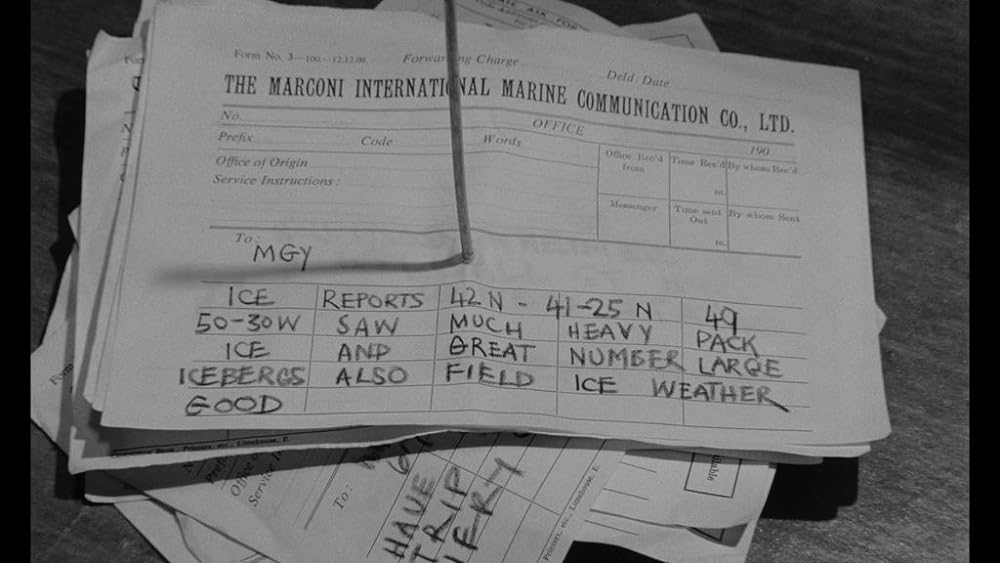 ATE ASK FOR
Form No. 3—100.—12.12.08. Forwarding Charge Deld Date
THE MARCONI INTERNATIONAL MARINE COMMUNICATION CO., LTD.
No. OFFICE 190
Prefix Code Words
Office of Origin
Service Instructions:
Office Rec'd from Time Rec'd By whom Rec'd
m.
Messenger Time sent Out By whom Sent
m.
To:
MGY
ICE REPORTS 42N - 41-25 N 49
50-30W SAW MUCH HEAVY PACK
ICE AND GREAT NUMBER LARGE
ICEBERGS ALSO FIELD ICE WEATHER
GOOD
Printers, etc., Limehouse, E.
Prefix
Office o
Service I
To:
HAVE
TRIP
Printers, etc., Limehouse, E
ailable
Form